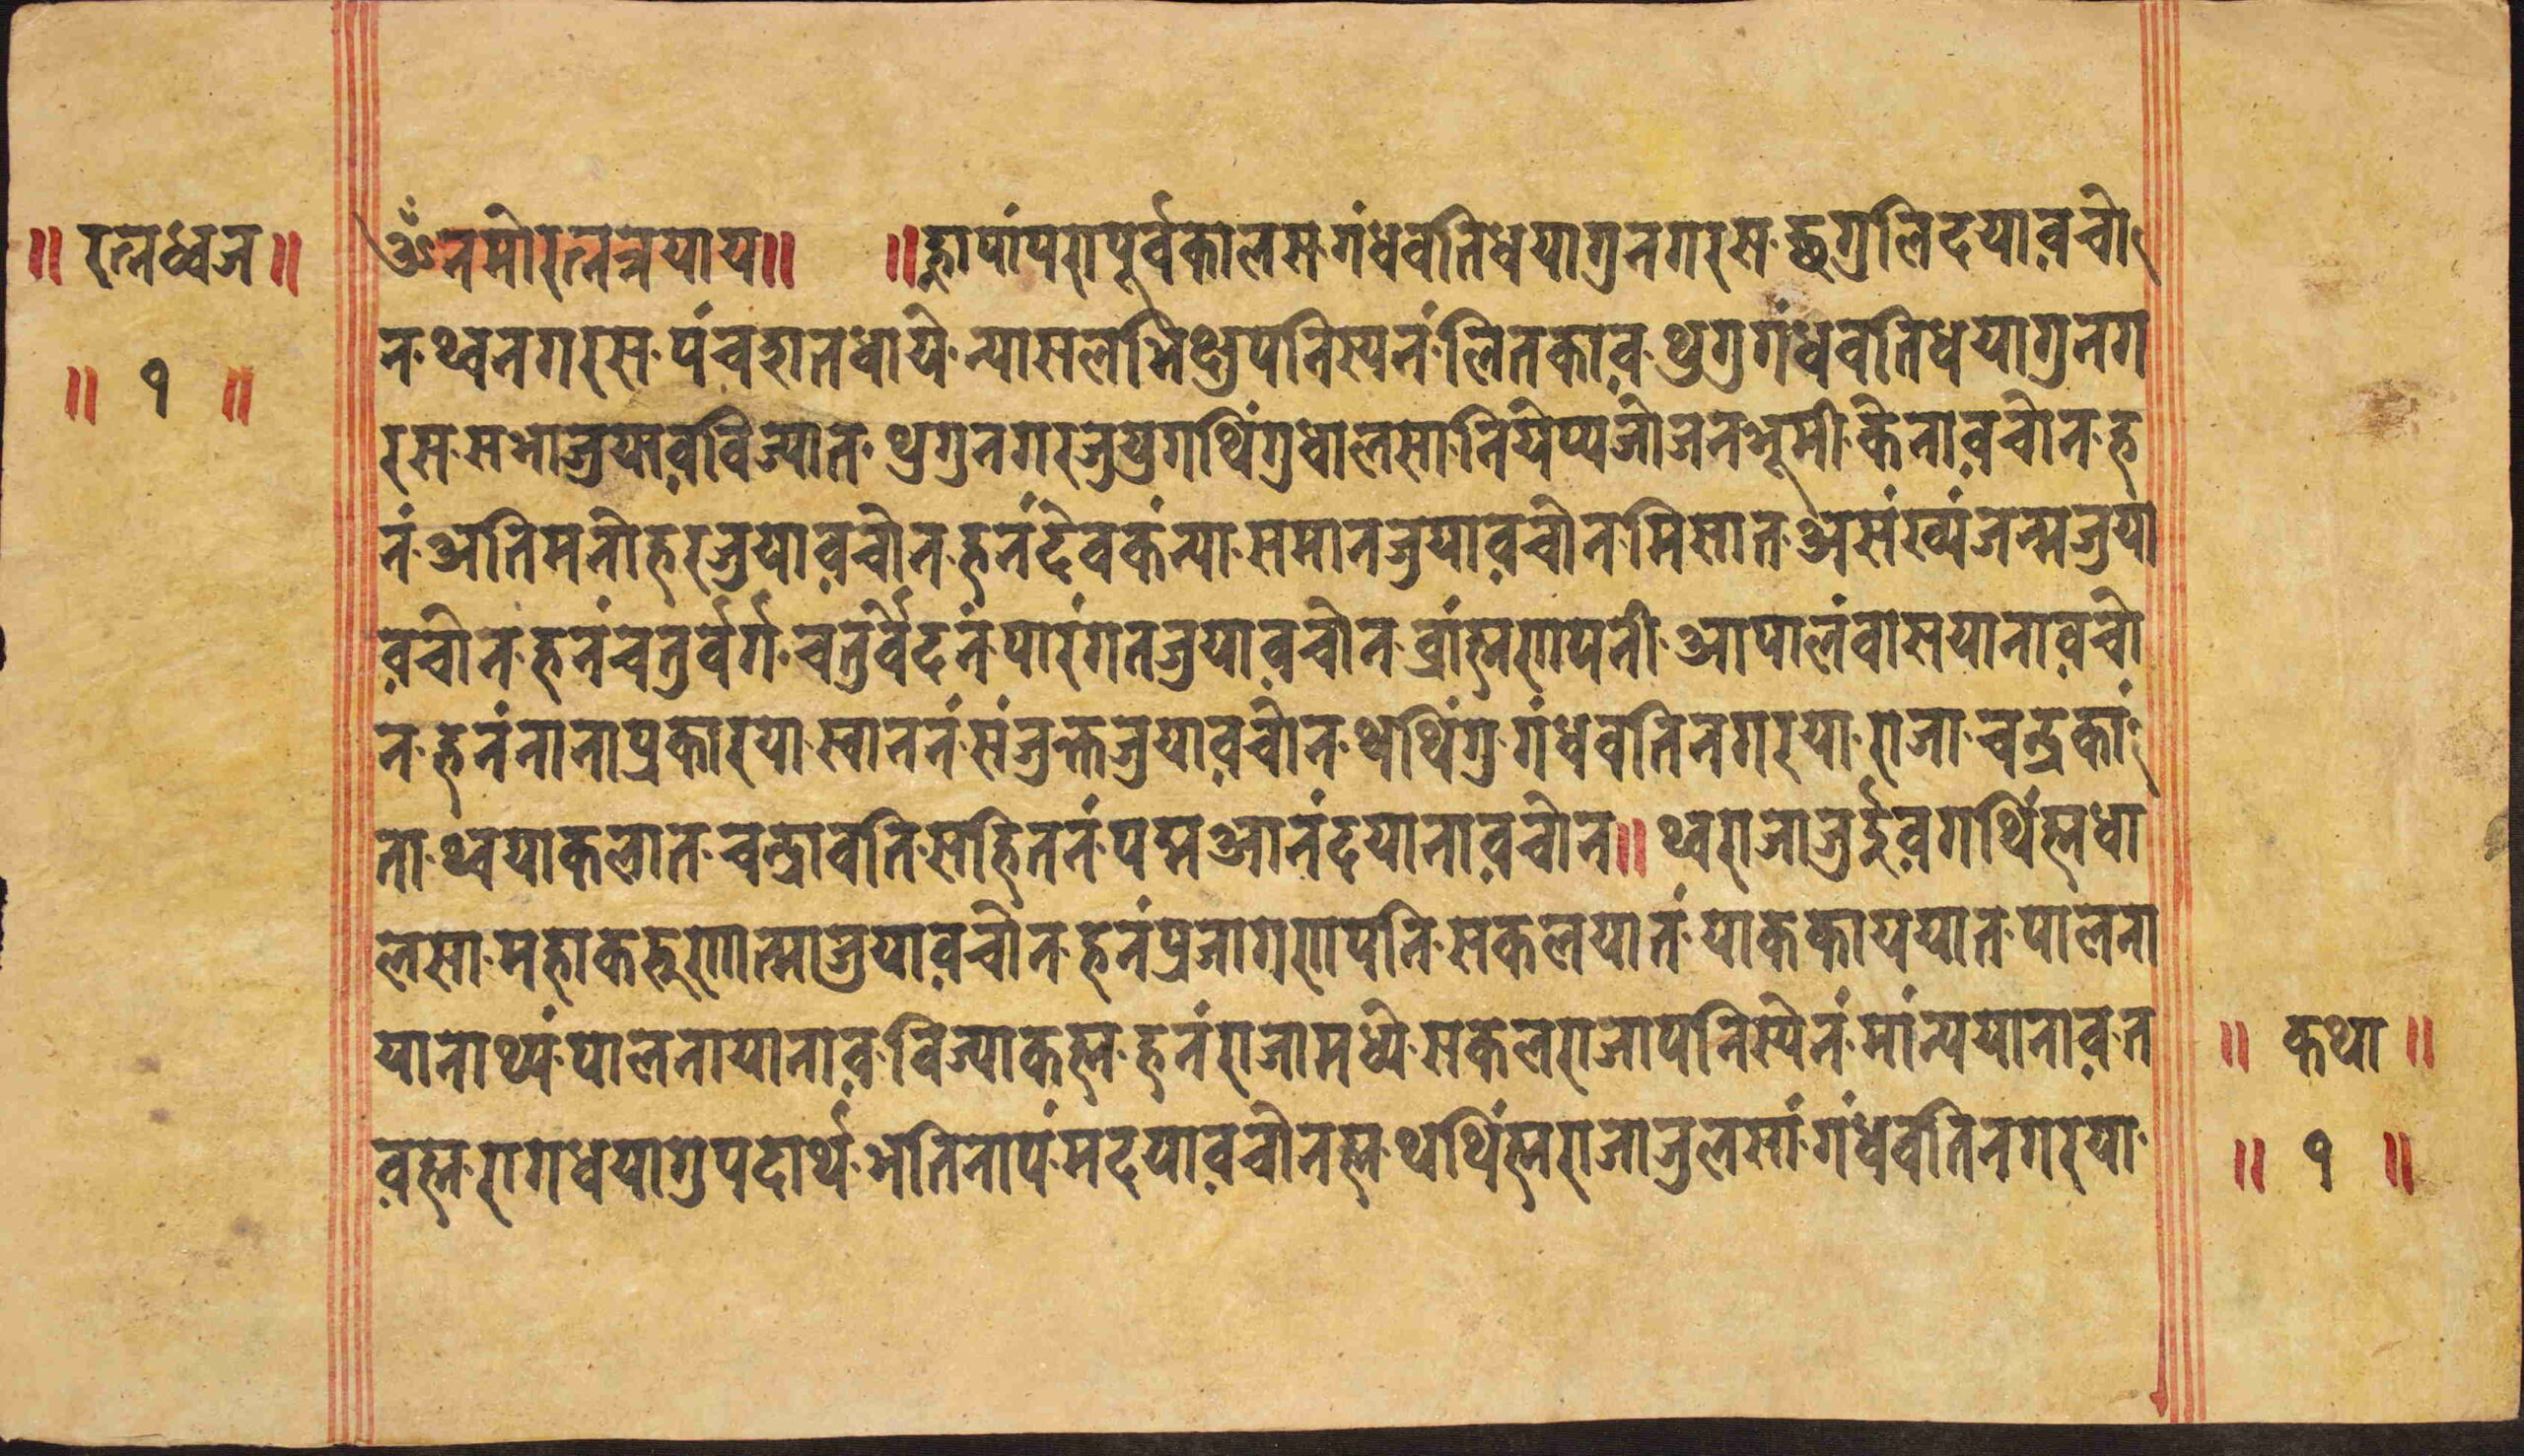 ॥ रत्नध्वज ॥
॥ १ ॥
ॐ नमोरत्नत्रयाय ॥ ॥ ह्नापांपरापूर्वकालस॰गंधवतिधयागुनगरस॰छगुलिदयाव़चो
न॰थ्वनगरस॰पंचशतधाये॰न्यासलभिक्षुपनिस्यनं॰लितकाव़॰थुगुगंधवतिधयागुनग
रस॰सभाजुयाव़विज्यात॰थुगुनगरजुयुगथिंगुधालसा॰नियेप्यजोजनभूमी॰केनाव़चोन॰ह
नं॰अतिमनोहरजुयाव़चोन॰हनंदेवकंन्या॰समानजुयाव़चोन॰मिसात॰असंख्यंजन्मजुया
व़चोन॰हनंचतुर्वर्ग॰चतुर्वेदनं॰पारंगतजुयाव़चोन॰ब्रांह्मणपनी॰आपालंवासयानाव़चो
न॰हनंनानाप्रकारया॰स्वाननं॰संजुक्तजुयाव़चोन॰थथिंगु॰गंधवतिनगरया॰राजा॰चन्द्रकां
ता॰थ्वयाकलात॰चन्द्रावति॰सहितनं॰पद्मआनंदयानाव़चोन ॥ थ्वराजाजुर्ईव़गथिंह्मधा
लसा॰महाकरुणात्माजुयाव़चोन॰हनंप्रजागणपनि॰सकलयातं॰याककाययात॰पालना
यानाथ्यं॰पालनायानाव़॰विज्याकह्म॰हनंराजामध्ये॰सकलराजापनिस्येनं॰मांन्ययानाव़॰त
व़ह्म॰रागधयागुपदार्थ॰भतिनापं॰मदयाव़चोनह्म॰थथिंह्मराजाजुलसां॰गंधवतिनगरया॰
॥ कथा ॥
॥ १ ॥